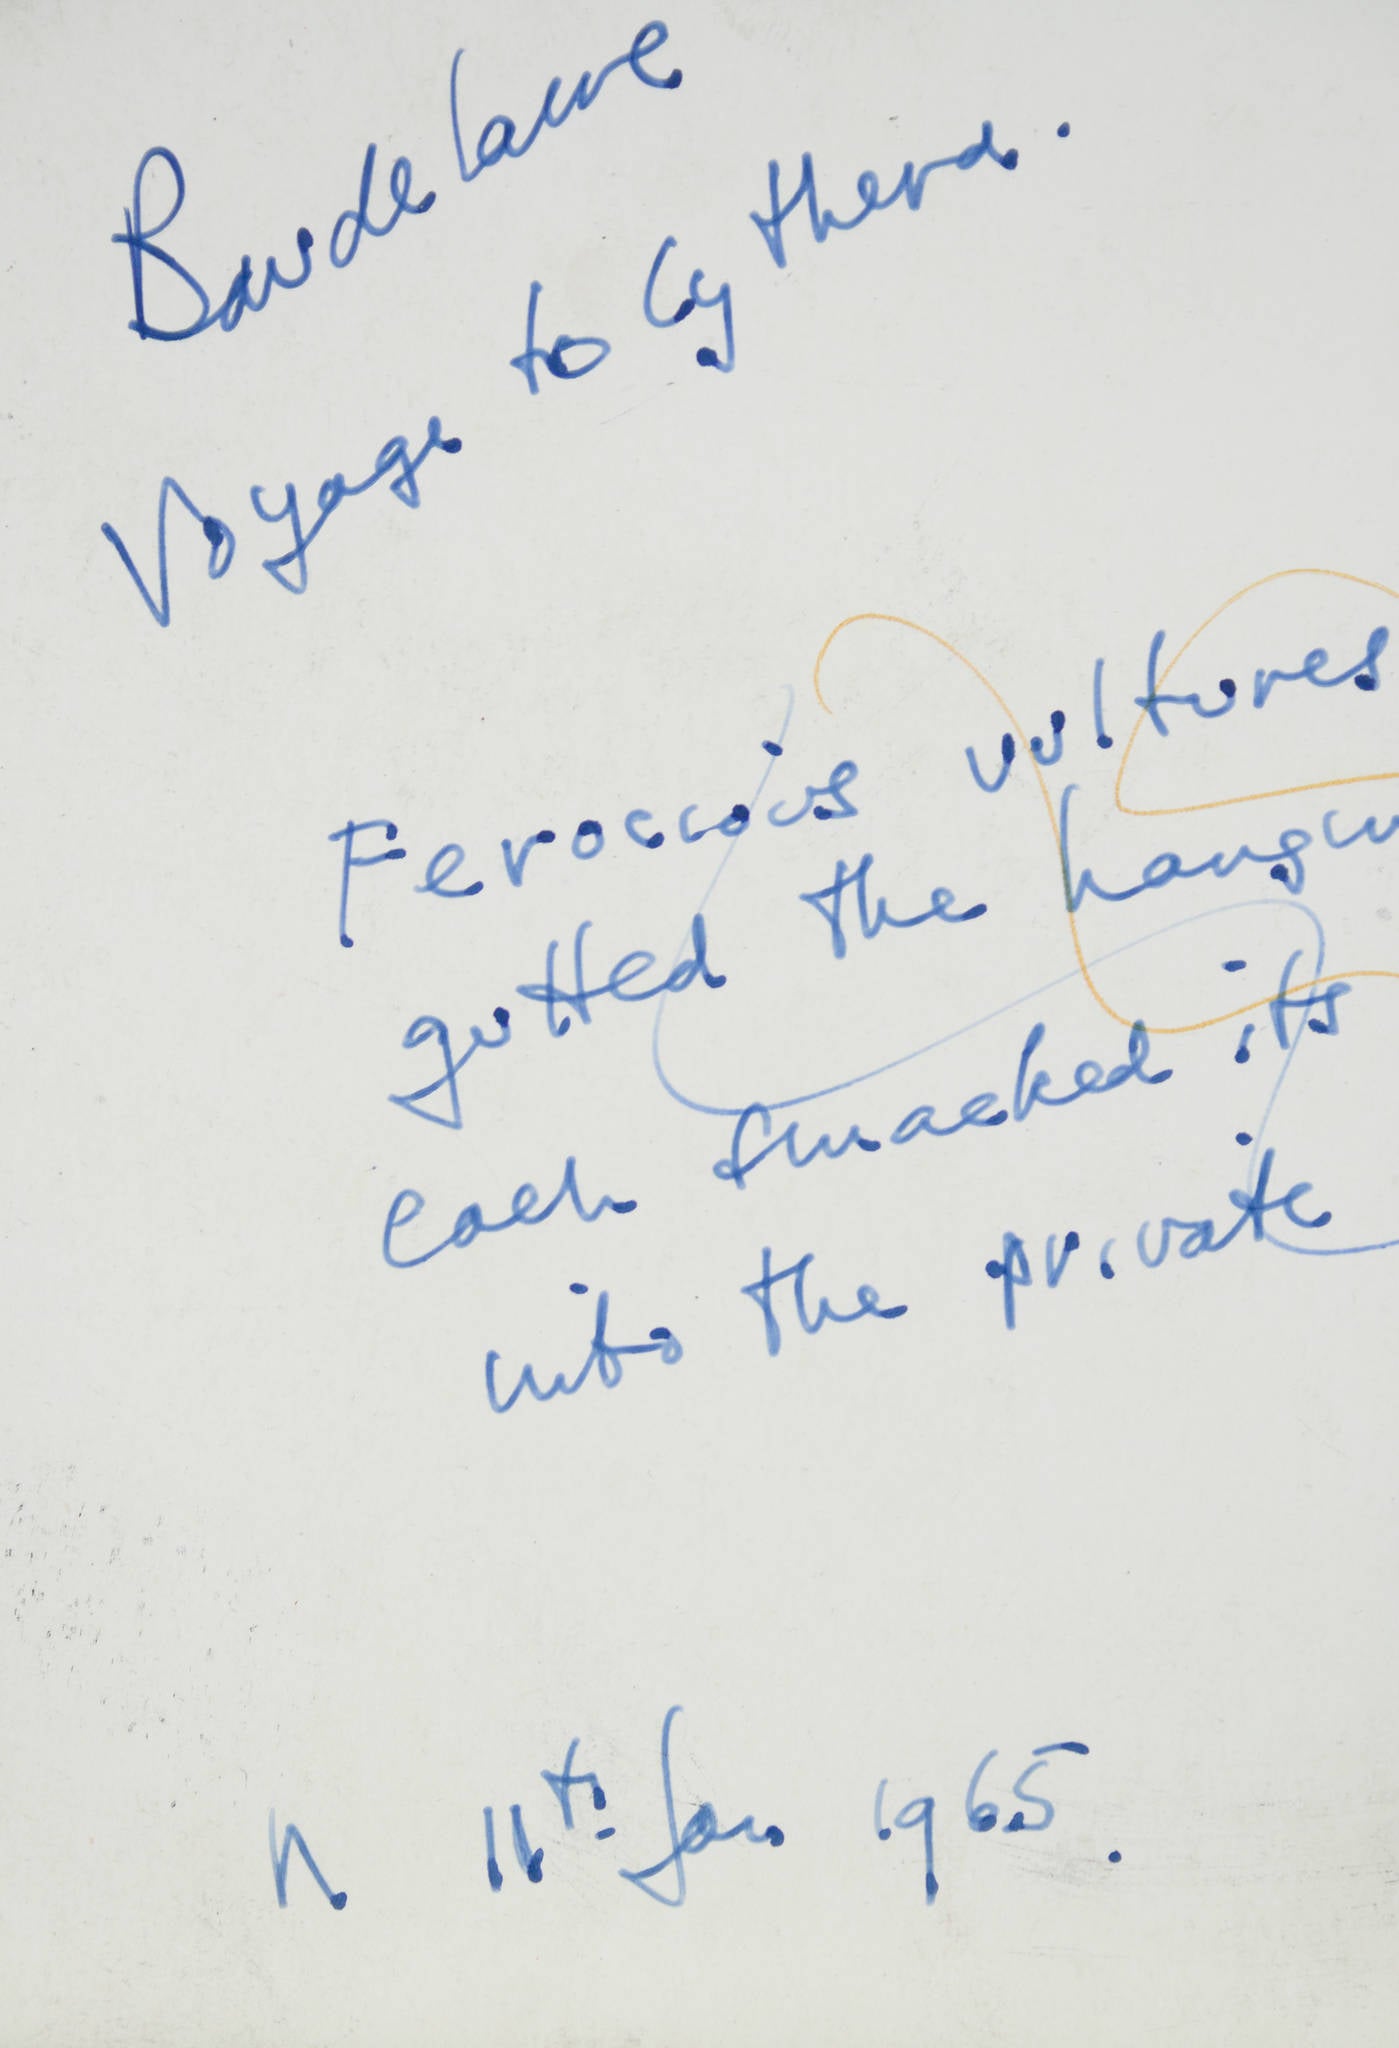 Baudelaire
Voyage to Cythera.
Ferocious vultures
gutted the hangin
each smacked its
into the private
N 11th Jan 1965.